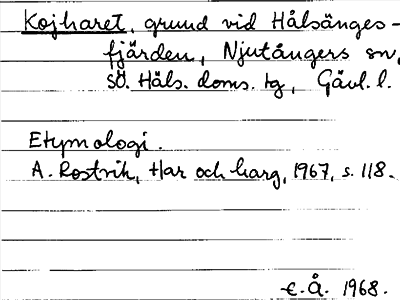 Kojharet, grund vid Hålsänges-
fjärden, Njutångers sn,
SÖ. Häls. doms. tg, Gävl. l.
Etymologi.
A. Rostvik, Har och harg, 1967, s. 118.
E. Å. 1968.